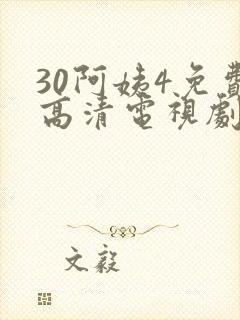 30阿姨4免費
高清電視劇
文毅